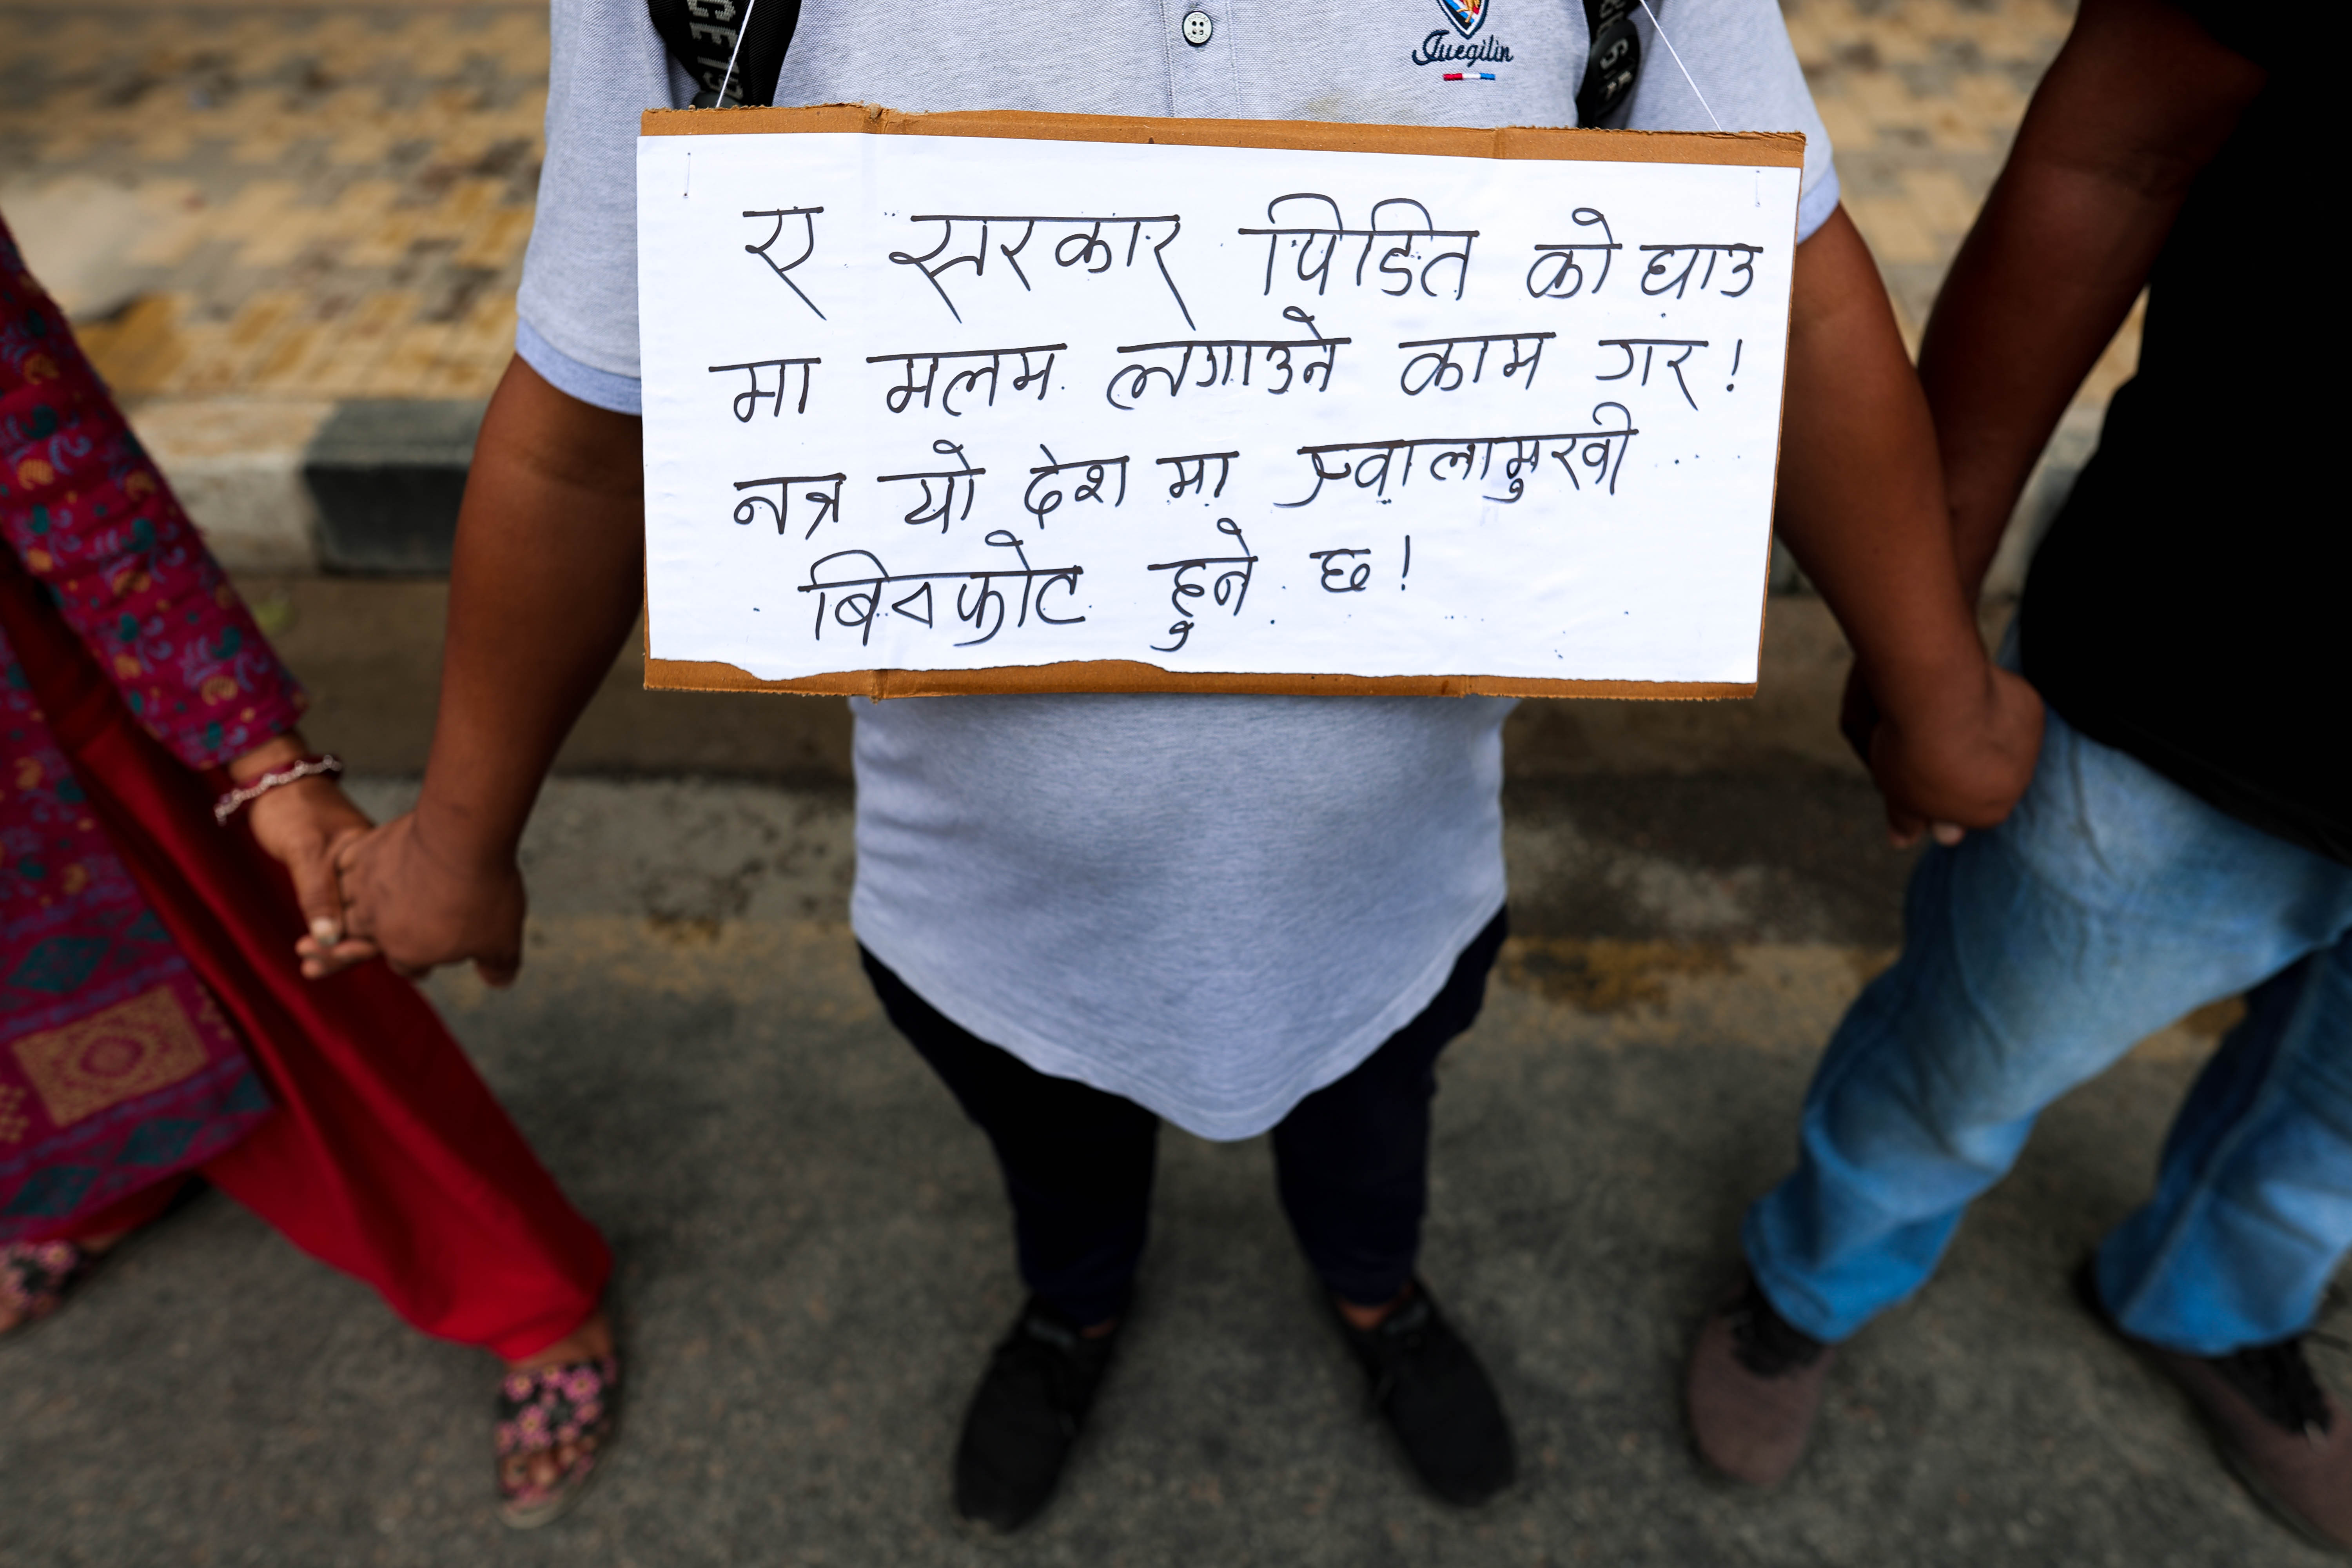 Juegilin
ए सरकार पिडित को घाउ
मा मलम लगाउने काम गर!
नत्र यो देश मा ज्वालामुखी
बिस्फोट हुने छ!